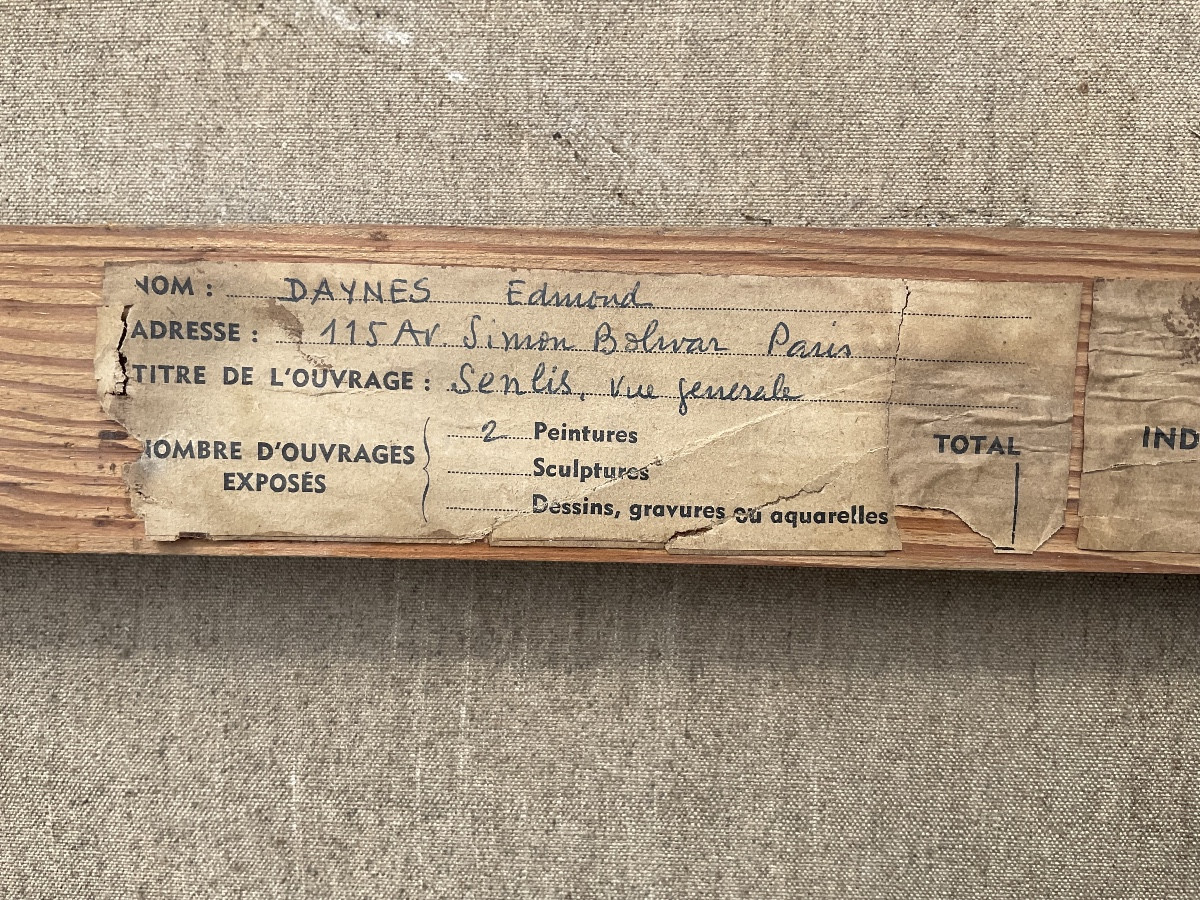 NOM : DAYNES Edmond
ADRESSE : 115 Av. Simon Bolivar Paris
TITRE DE L'OUVRAGE : Senlis, vue generale
NOMBRE D'OUVRAGES EXPOSÉS
2 Peintures
Sculptures
Dessins, gravures ou aquarelles
TOTAL
IND